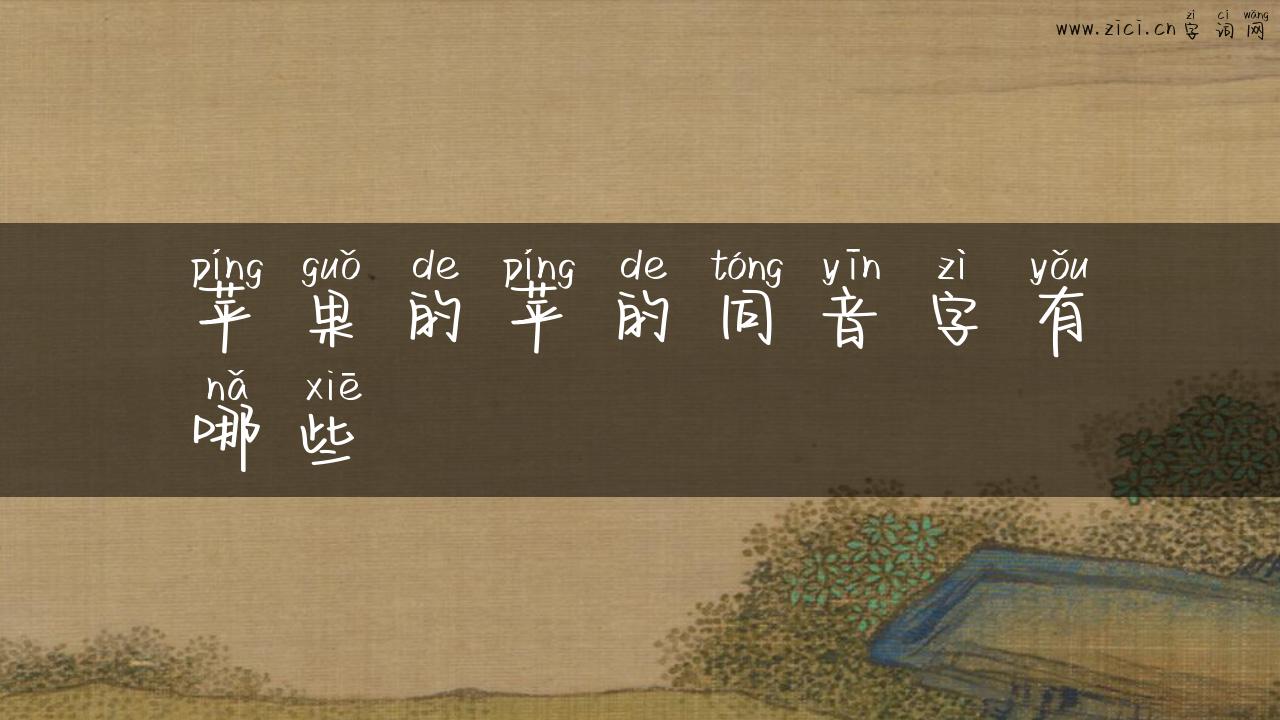 zì cí wǎng
www.zici.cn 字词网
píng guǒ de píng de tóng yīn zì yǒu
苹果的苹的同音字有
nǎ xiē
哪些